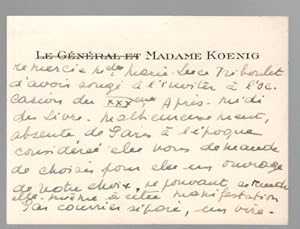 LE GÉNÉRAL ET MADAME KOENIG
remercie Mdes Marie-Luce Triboulet
d'avoir songé à l'inviter à l'oc-
casion du XXXème Après-midi
du Livre. Malheureusement,
absente de Paris à l'époque
considérée elle vous demande
de choisir pour elle un ouvrage
de votre choix, ne pouvant se rendre
elle-même à cette manifestation
Par courrier séparé, un vire-